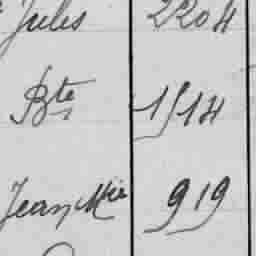 Jules 2204
Bte 1514
Jean Mie 919